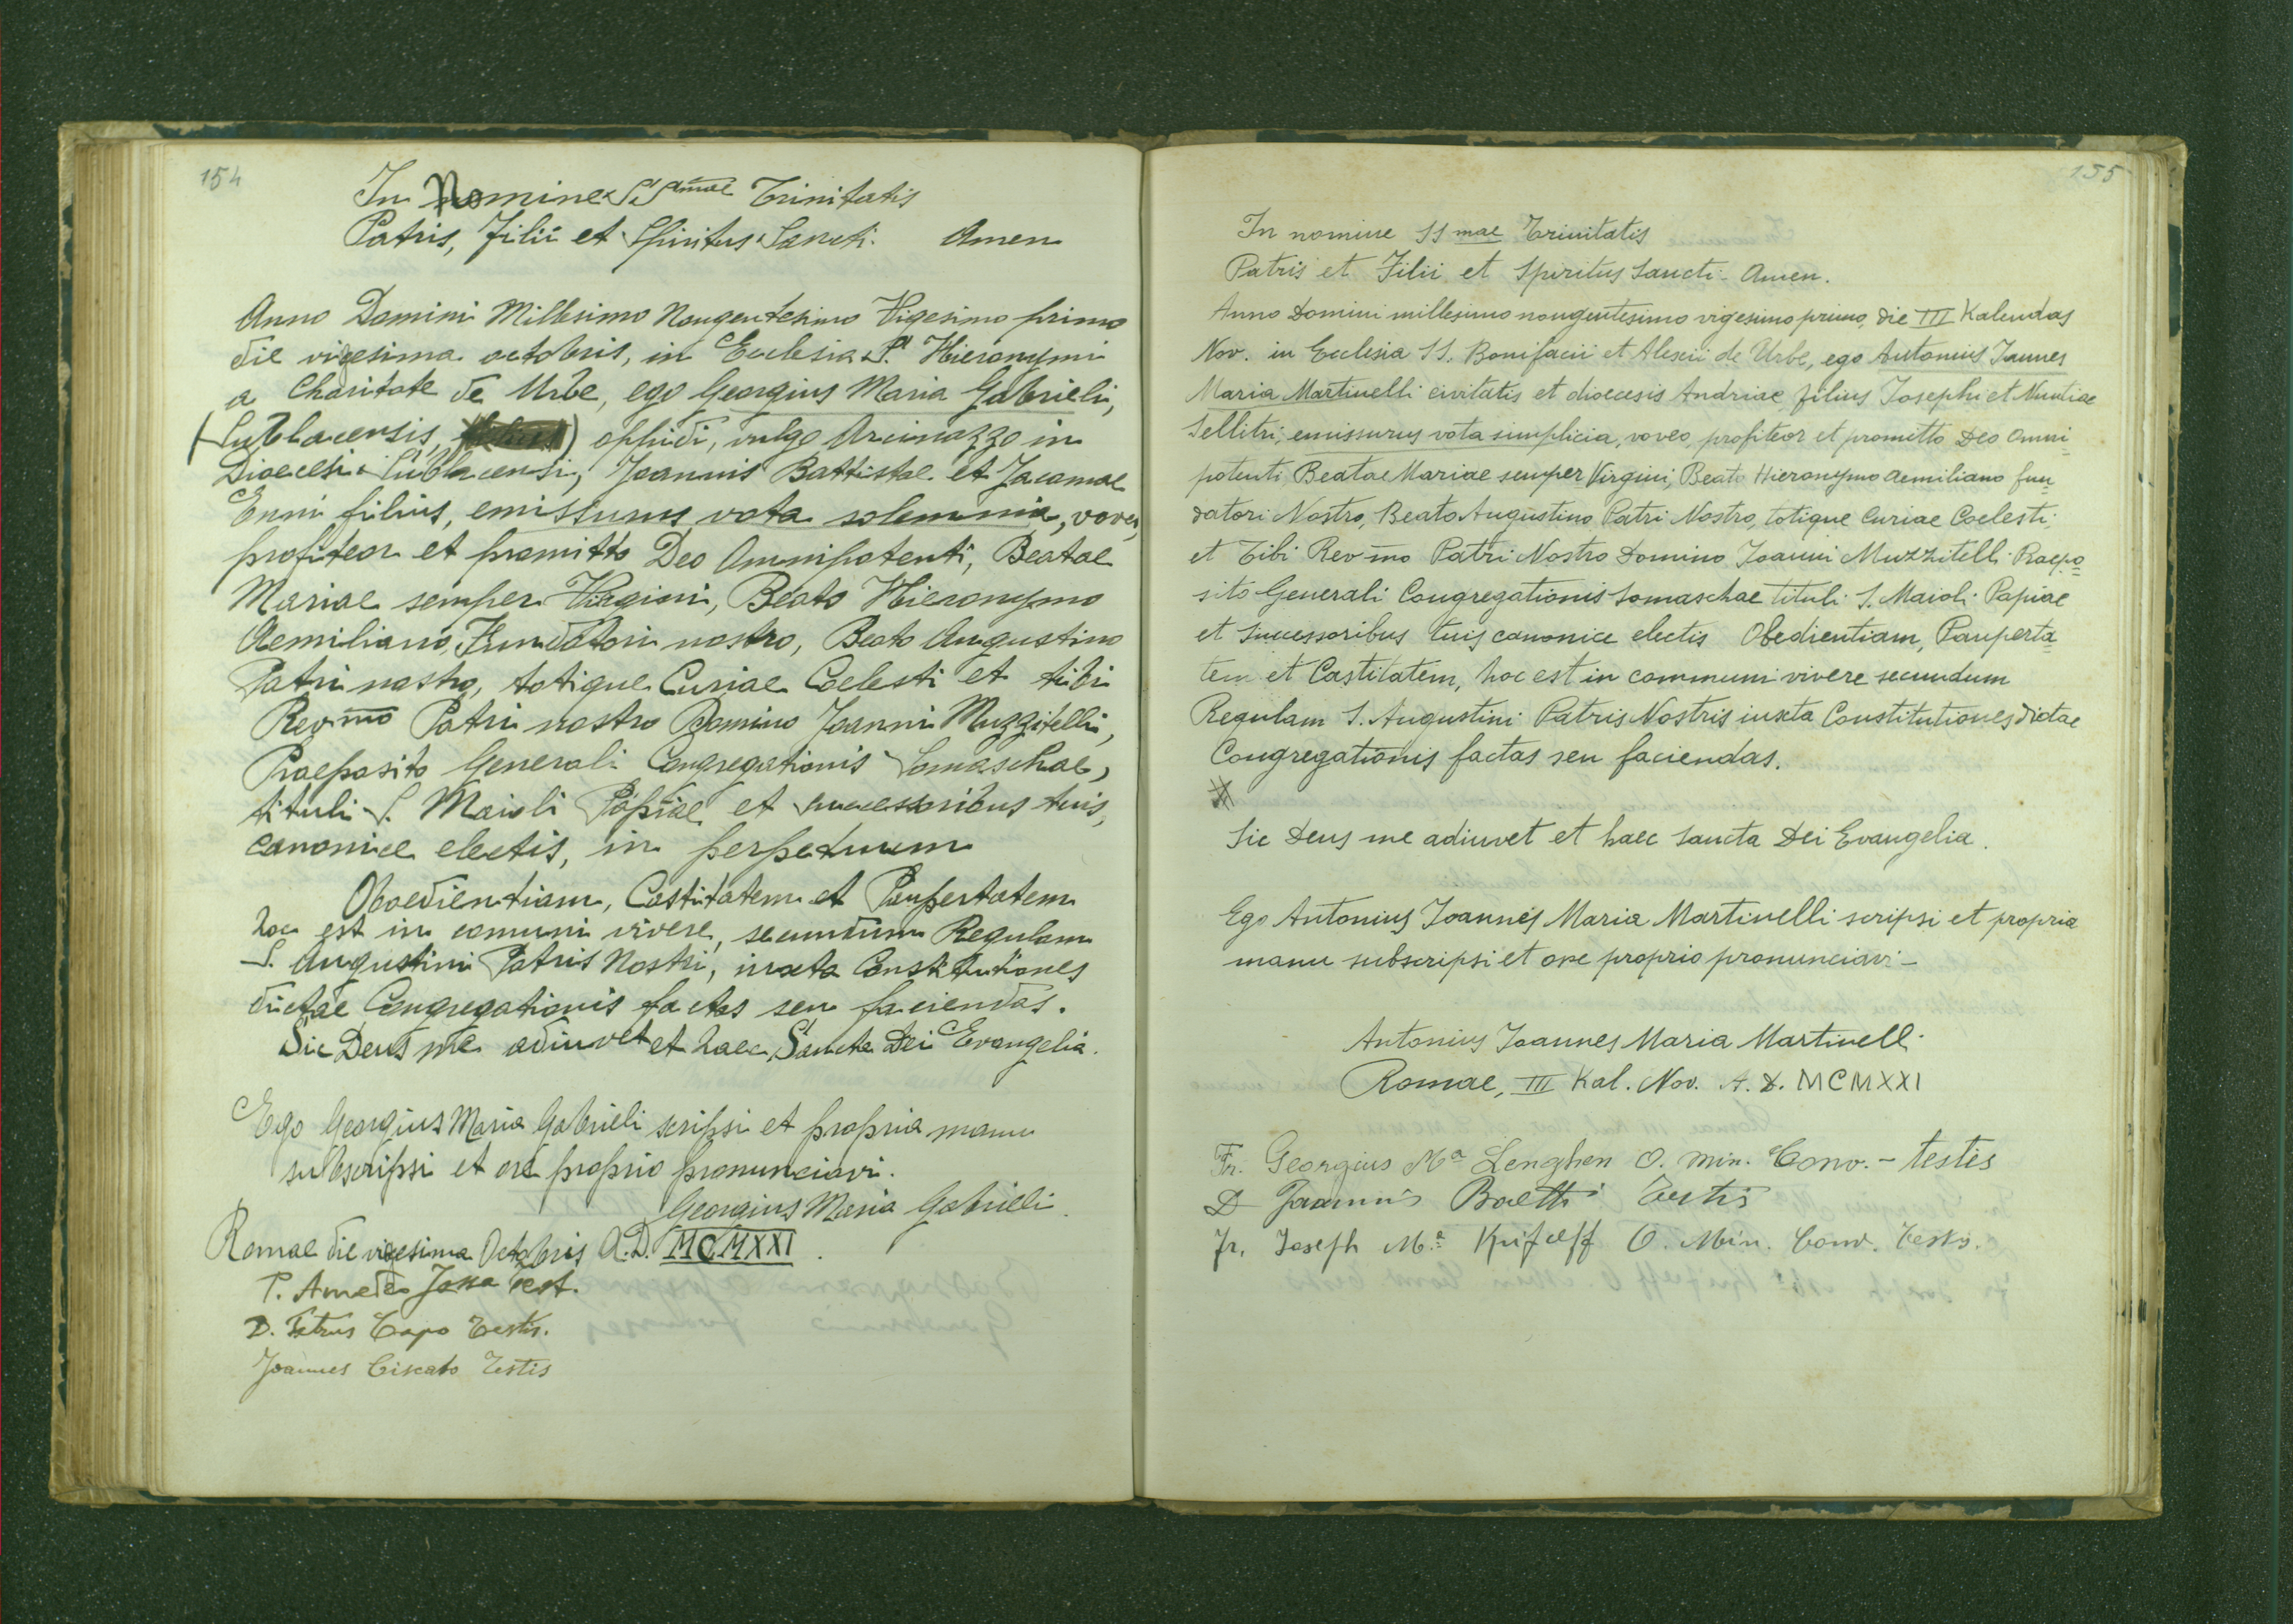 154
In Nomine SSmae Trinitatis
Patris, Filii et Spiritus Sancti. Amen
Anno Domini Millesimo Nongentesimo Vigesimo primo
die vigesima octobris, in Ecclesia S. Hieronymi
a Charitate de Urbe, ego Georgius Maria Gabrieli,
(Sublacensis, ) oppidi, vulgo Arcinazzo in
Dioecesi Sublacensi, Joannis Battistae et Jacomae
Enni filius, emissurus vota solemnia, voveo,
profiteor et promitto Deo Omnipotenti, Beatae
Mariae semper Virgini, Beato Hieronymo
Aemiliano, Fundatori nostro, Beato Augustino
Patri nostro, totique Curiae Coelesti et tibi
Revmo Patri nostro Domino Joanni Muzzitelli,
Praeposito Generali Congregationis Somaschae,
tituli S. Maioli Papiae et successoribus tuis,
canonice electis, in perpetuum
Oboedientiam, Castitatem et Paupertatem
hoc est in comuni vivere, secundum Regulam
S. Augustini Patris Nostri, iuxta Constitutiones
dictae Congregationis factas seu faciendas.
Sic Deus me adiuvet et haec Sancta Dei Evangelia.
Ego Georgius Maria Gabrieli scripsi et propria manu
subscripsi et ore proprio pronunciavi.
Georgius Maria Gabrielli.
Romae die vigesima Octobris A.D. MCMXXI.
P. Amedeo Jossa Test.
D. Petrus Capo Testis.
Joannes Ciscato Testis
155
In nomine SSmae Trinitatis
Patris et Filii et Spiritus Sancti. Amen.
Anno Domini millesimo nongentesimo vigesimo primo, die III Kalendas
Nov. in Ecclesia SS. Bonifacii et Alexii de Urbe, ego Antonius Joannes
Maria Martinelli civitatis et dioecesis Andriae filius Josephi et Nuntiae
Sellitri, emissurus vota simplicia, voveo, profiteor et promitto Deo Omni-
potenti, Beatae Mariae semper Virgini, Beato Hieronymo Aemiliano fun=
datori Nostro, Beato Augustino Patri Nostro, totique Curiae Coelesti,
et Tibi Revmo Patri Nostro Domino Joanni Muzzitelli Praepo=
sito Generali Congregationis Somaschae tituli S. Maioli Papiae
et successoribus tuis canonice electis Obedientiam, Pauperta=
tem et Castitatem, hoc est in communi vivere secundum
Regulam S. Augustini Patris Nostris iuxta Constitutiones dictae
Congregationis factas seu faciendas.
Sic Deus me adiuvet et haec Sancta Dei Evangelia.
Ego Antonius Joannes Maria Martinelli scripsi et propria
manu subscripsi et ore proprio pronunciavi -
Antonius Joannes Maria Martinelli
Romae, III Kal. Nov. A. D. MCMXXI
Fr. Georgius Ma Lenghen O. Min. Conv. - testis
D Joannis Boetti Testis
Fr. Joseph Ma Knifelff O. Min. Conv. Testis.